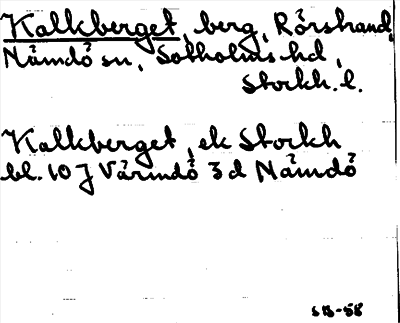 Kalkberget, berg, Rörstrand,
Nämdö sn, Sotholms hd,
Stockh. l.
Kalkberget, ek Stockh
bl. 10 J Värmdö 3 d Nämdö
SB-58